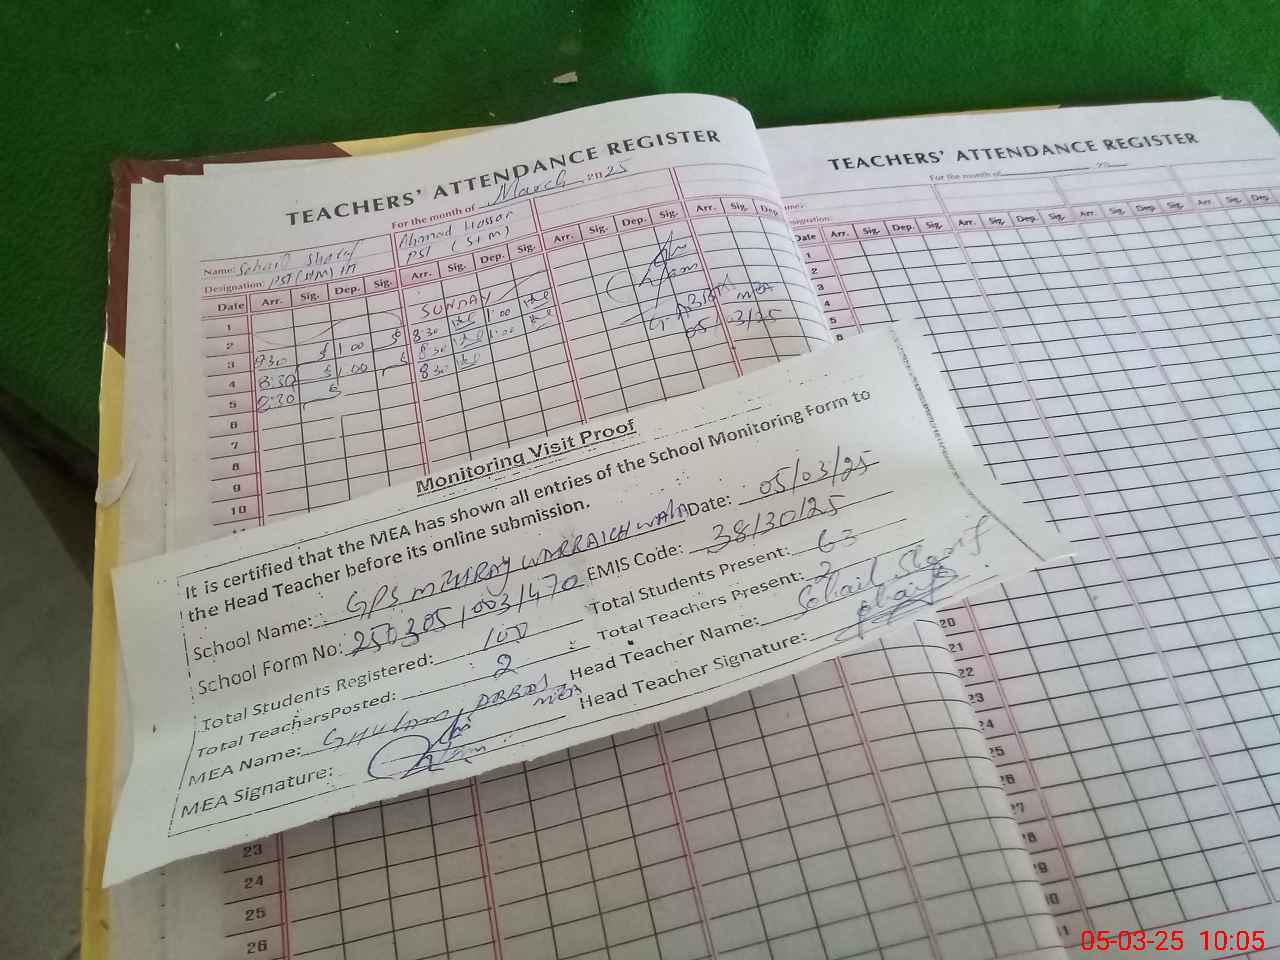 TEACHERS' ATTENDANCE REGISTER
For the month of March 2025
Name: Sohail Sharif Ahmad
Designation: PST
Date Arr. Sig. Dep. Sig. Arr. Sig. Dep. Sig. Arr. Sig. Dep. Sig. Arr. Sig. Dep.
1
2 SUNDAY
3 1:00 8:30 1:00
4 8:30 1:00 8:30 1:00
5 8:30 8:30
6
7
8
9
10
MEA
05/03/25
23
24
25
26
TEACHERS' ATTENDANCE REGISTER
For the month of
Date Arr. Sig. Dep. Sig. Arr. Sig. Dep. Sig. Arr. Sig. Dep. Sig. Arr. Sig. Dep.
1
2
3
4
5
20
21
22
23
24
25
26
27
28
29
Monitoring Visit Proof
It is certified that the MEA has shown all entries of the School Monitoring Form to
the Head Teacher before its online submission.
School Name: GPS WARRAICH WALA Date: 05/03/25
School Form No: EMIS Code:
Total Students Registered: 100 Total Students Present: 63
Total TeachersPosted: 2 Total Teachers Present: 2
MEA Name: GHULAM ABBAS MEA Head Teacher Name: Sohail Sharif
MEA Signature: Head Teacher Signature:
05-03-25 10:05